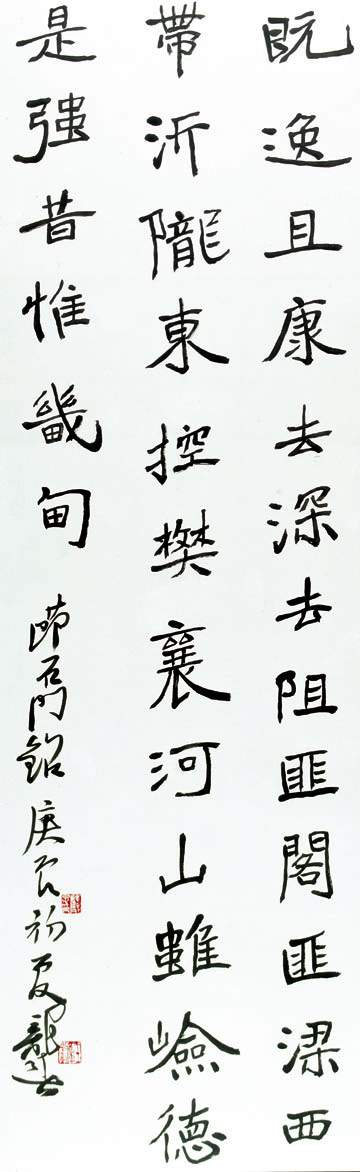 既逸且康去深去阻匪閣匪梁西
帶沂隴東控樊襄河山雖嶮德
是强昔惟畿甸
節石門銘 庚 初夏